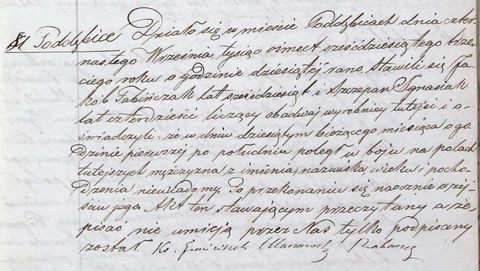 81. Poddębice Działo się w mieście Poddębicach dnia czter-
nastego Września tysiąc ośmset sześćdziesiątego trze-
ciego roku o godzinie dziesiątej rano. Stawili się Ja-
kób Tabińczak lat sześćdziesiąt i Szczepan Ignasiak
lat czterdzieści liczący obadwaj wyrobnicy tutejsi i o-
świadczyli, że w dniu dziesiątym bieżącego miesiąca o go-
dzinie pierwszej po południu poległ w boju na polach
tutejszych mężczyzna z imienia, nazwiska, wieku i pocho-
dzenia niewiadomy. Po przekonaniu się naocznie o zej-
ściu jego Akt ten stawającym przeczytany a że
pisać nie umieją przez Nas tylko podpisany
został. Ks.